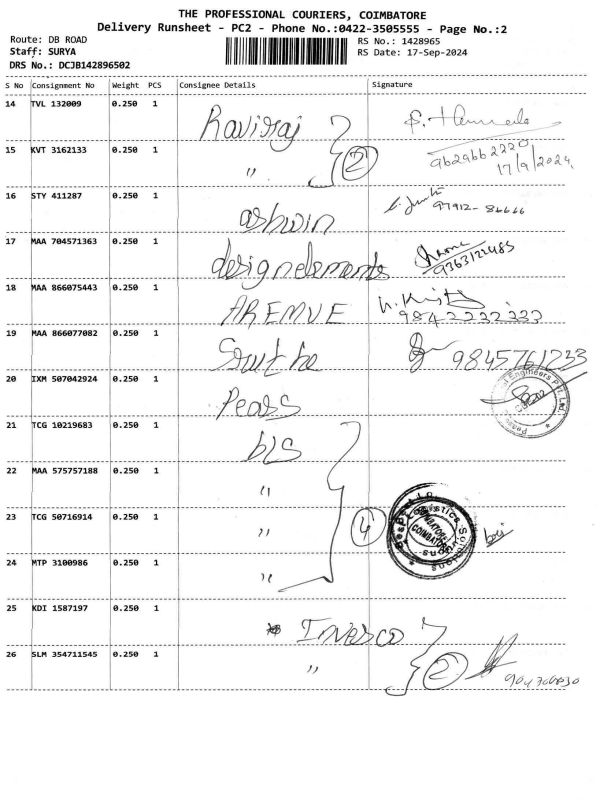 THE PROFESSIONAL COURIERS, COIMBATORE
Delivery Runsheet - PC2 - Phone No.:0422-3505555 - Page No.:2
Route: DB ROAD RS No.: 1428965
Staff: SURYA RS Date: 17-Sep-2024
DRS No.: DCJB142896502
S No Consignment No Weight PCS Consignee Details Signature
14 TVL 132009 0.250 1 Raviraj
15 KVT 3162133 0.250 1 " 2 9629662220
17/9/2024.
16 STY 411287 0.250 1 ashwin 97912-86666
17 MAA 704571363 0.250 1 designelements 9363122485
18 MAA 866075443 0.250 1 AREMVE 9842232333
19 MAA 866077082 0.250 1 9845761233
20 IXM 507042924 0.250 1 Pears
21 TCG 10219683 0.250 1 bls
22 MAA 575757188 0.250 1 "
23 TCG 50716914 0.250 1 " 4 COIMBATORE
24 MTP 3100986 0.250 1 "
25 KDI 1587197 0.250 1 Invesco
26 SLM 354711545 0.250 1 " 2